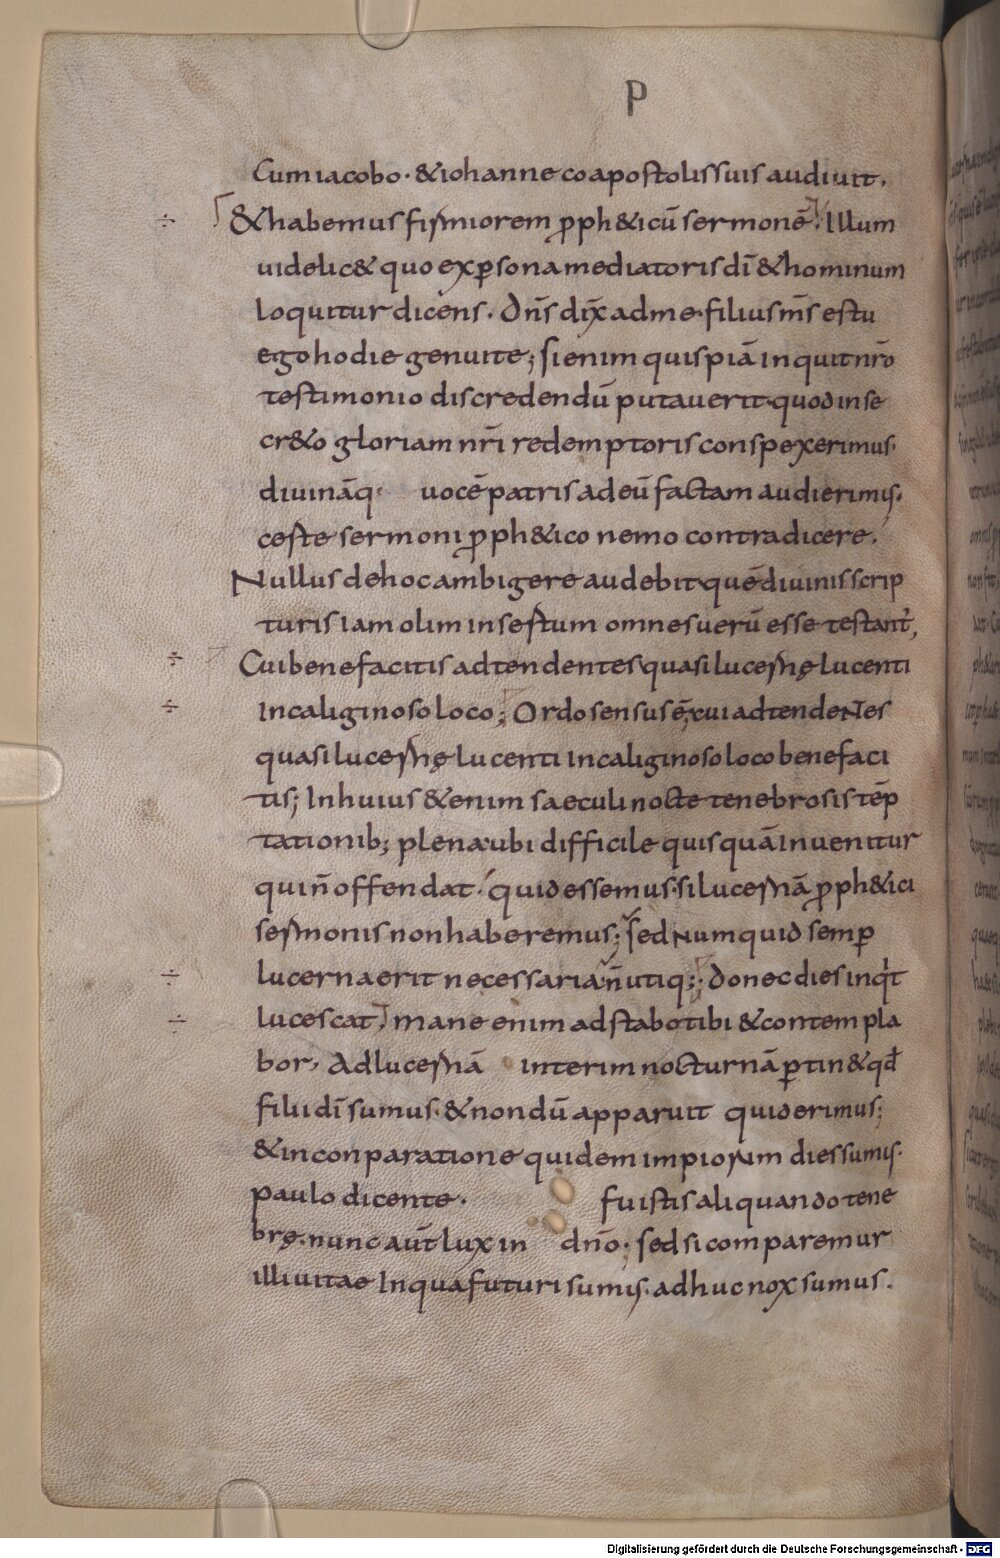 P
Cum iacobo · & iohanne coapostolis suis audiuit.
÷ & habemus firmiorem pph&icū sermonē; Illum
uidelic& quo ex psona mediatoris dī & hominum
loquitur dicens · Dñs dix̄ ad me · filius m̄s es tu
ego hodie genui te; si enim quispiā inquit nr̄o
testimonio discredendū putauerit · quod in se
cr&o gloriam nr̄i redemptoris conspexerimus ·
diuināq · uocē patris ad eū factam audierimus ·
c este sermoni pph&ico nemo contradicere.
Nullus de hoc ambigere audebit · quē diuinis scrip
turis iam olim insertum omnes uerū esse testant̄,
÷ Cui benefacitis adtendentes quasi lucernę lucenti
÷ In caliginoso loco; Ordo sensus ē, cui adtendeNtes
quasi lucernę lucenti in caliginoso loco benefaci
tis; In huius &enim saeculi nocte tenebrosis tēp
tationib; plena · ubi difficile quisquā inuenitur
qui n̄ offendat · quid essemus · si lucernā pph&ici
sermonis non haberemus; sed Numquid semp
÷ lucerna erit necessaria · n̄ utiq; · donec dies inq̇t
÷ lucescat; mane enim adstabo tibi & contempla
bor, Ad lucernā interim nocturnā ptin& qđ
filii dī sumus · & nondū apparuit quid erimus;
& in conparatione quidem impiorum dies sumus ·
paulo dicente · fuistis aliquando tene
brę · nunc aūt lux in dn̄o · sed si comparemur
illi uitae In qua futuri sumus · adhuc nox sumus ·
Digitalisierung gefördert durch die Deutsche Forschungsgemeinschaft - DFG